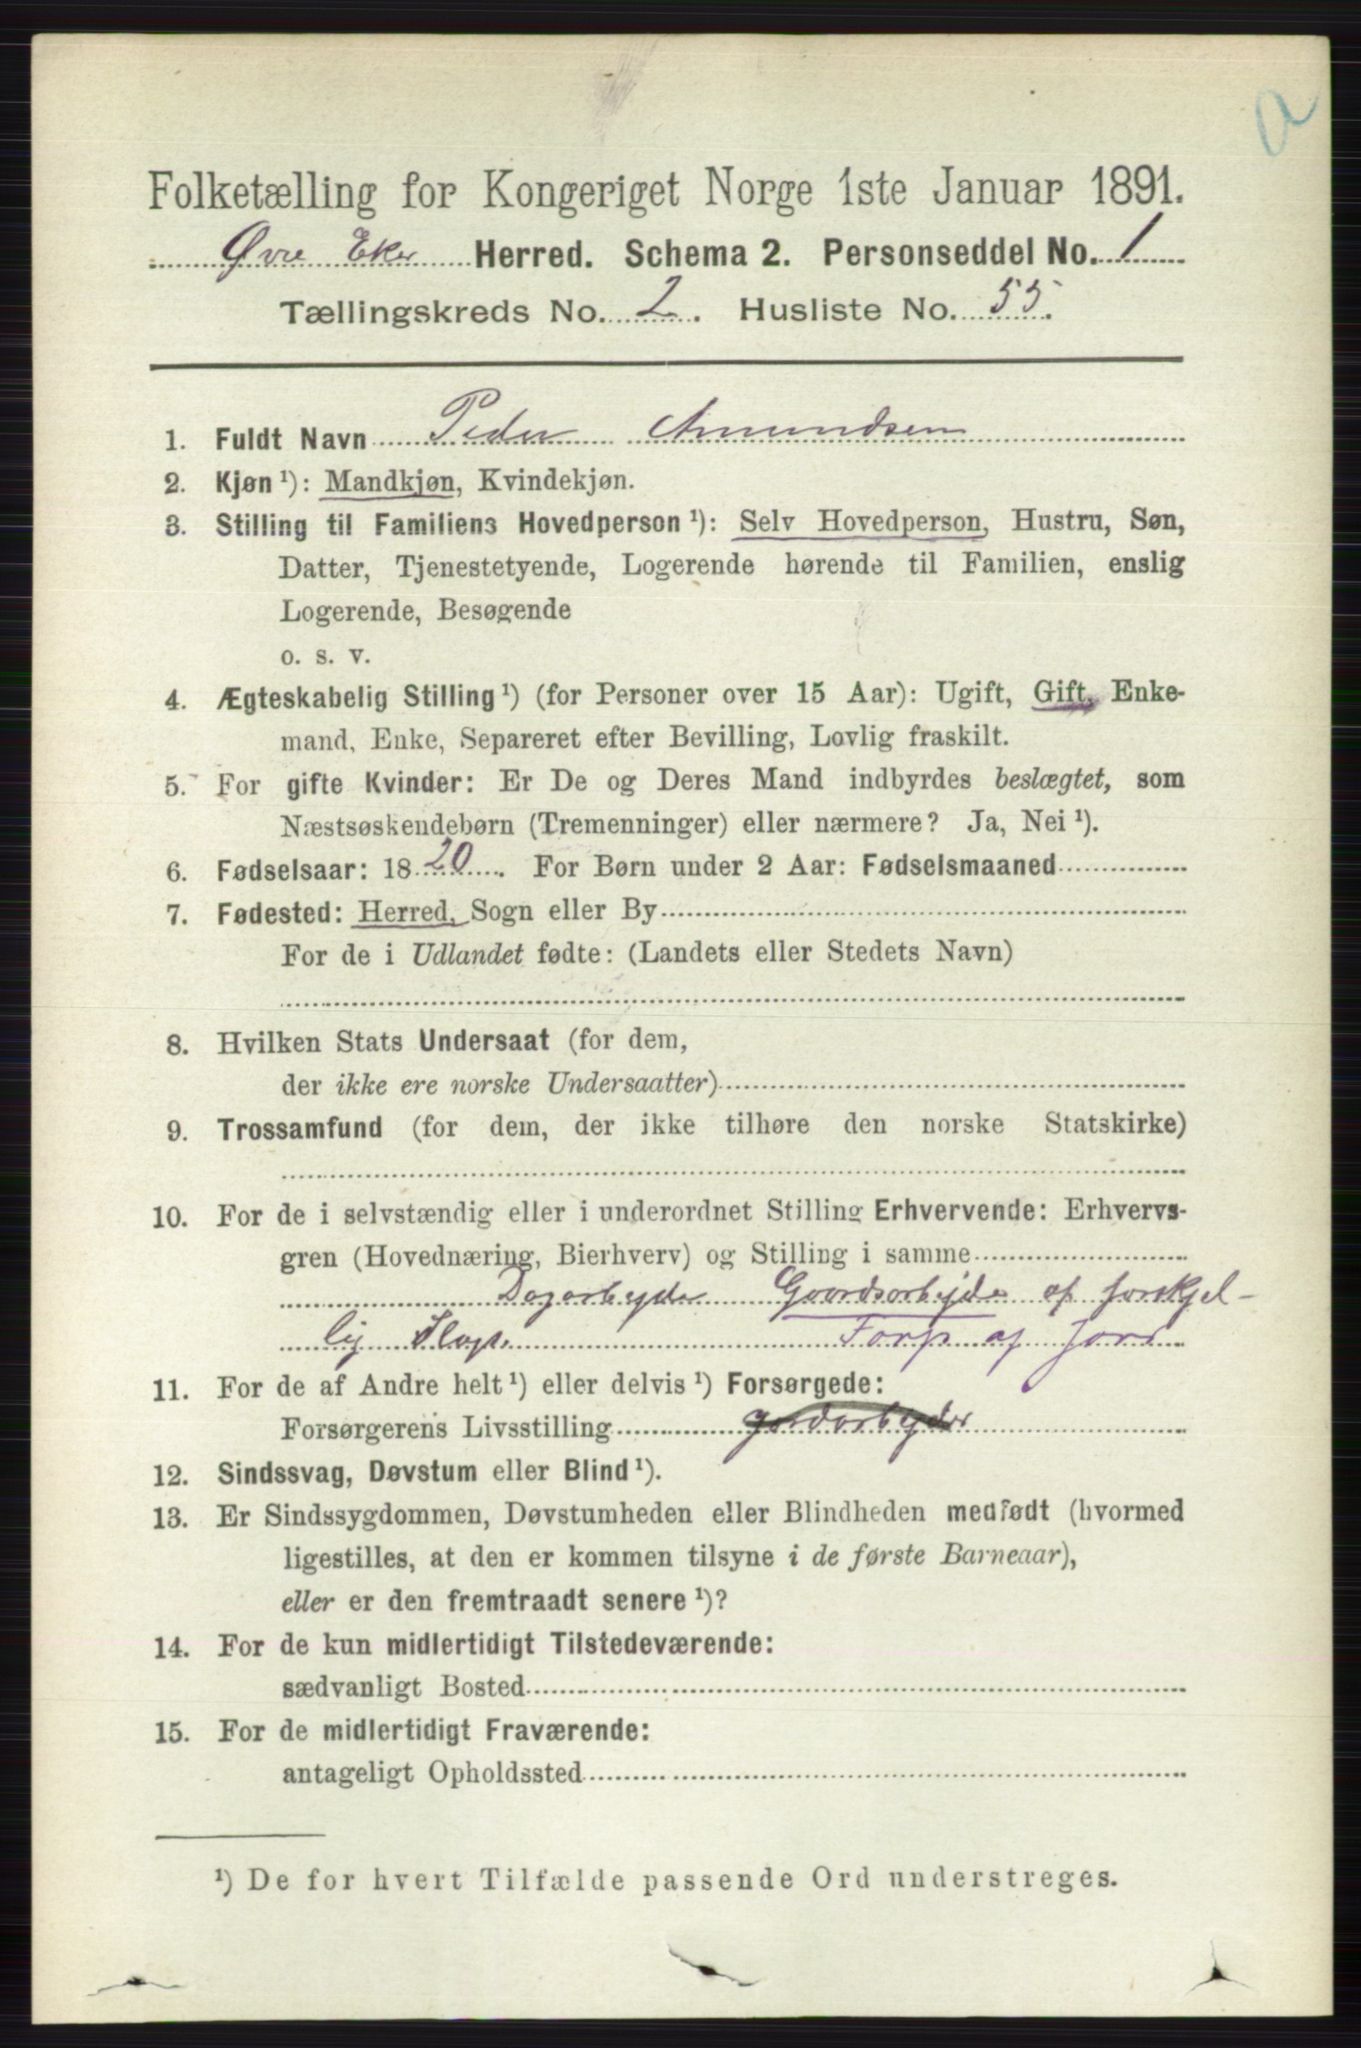 a
Folketælling for Kongeriget Norge 1ste Januar 1891.
Øvre Eker Herred. Schema 2. Personseddel No. 1
Tællingskreds No. 2. Husliste No. 55.
1. Fuldt Navn Peder Amundsen
2. Kjøn ¹): Mandkjøn, Kvindekjøn.
3. Stilling til Familiens Hovedperson ¹): Selv Hovedperson, Hustru, Søn,
Datter, Tjenestetyende, Logerende hørende til Familien, enslig
Logerende, Besøgende
o. s. v.
4. Ægteskabelig Stilling ¹) (for Personer over 15 Aar): Ugift, Gift, Enke-
mand, Enke, Separeret efter Bevilling, Lovlig fraskilt.
5. For gifte Kvinder: Er De og Deres Mand indbyrdes beslægtet, som
Næstsøskendebørn (Tremenninger) eller nærmere? Ja, Nei ¹).
6. Fødselsaar: 1820. For Børn under 2 Aar: Fødselsmaaned
7. Fødested: Herred, Sogn eller By
For de i Udlandet fødte: (Landets eller Stedets Navn)
8. Hvilken Stats Undersaat (for dem,
der ikke ere norske Undersaatter)
9. Trossamfund (for dem, der ikke tilhøre den norske Statskirke)
10. For de i selvstændig eller i underordnet Stilling Erhvervende: Erhvervs-
gren (Hovednæring, Bierhverv) og Stilling i samme
Dagarbeyder Gaardsarbejde af forskjel-
lig Slags af Jord
11. For de af Andre helt ¹) eller delvis ¹) Forsørgede:
Forsørgerens Livsstilling gordarbejder
12. Sindssvag, Døvstum eller Blind ¹).
13. Er Sindssygdommen, Døvstumheden eller Blindheden medfødt (hvormed
ligestilles, at den er kommen tilsyne i de første Barneaar),
eller er den fremtraadt senere ¹)?
14. For de kun midlertidigt Tilstedeværende:
sædvanligt Bosted
15. For de midlertidigt Fraværende:
antageligt Opholdssted
¹) De for hvert Tilfælde passende Ord understreges.